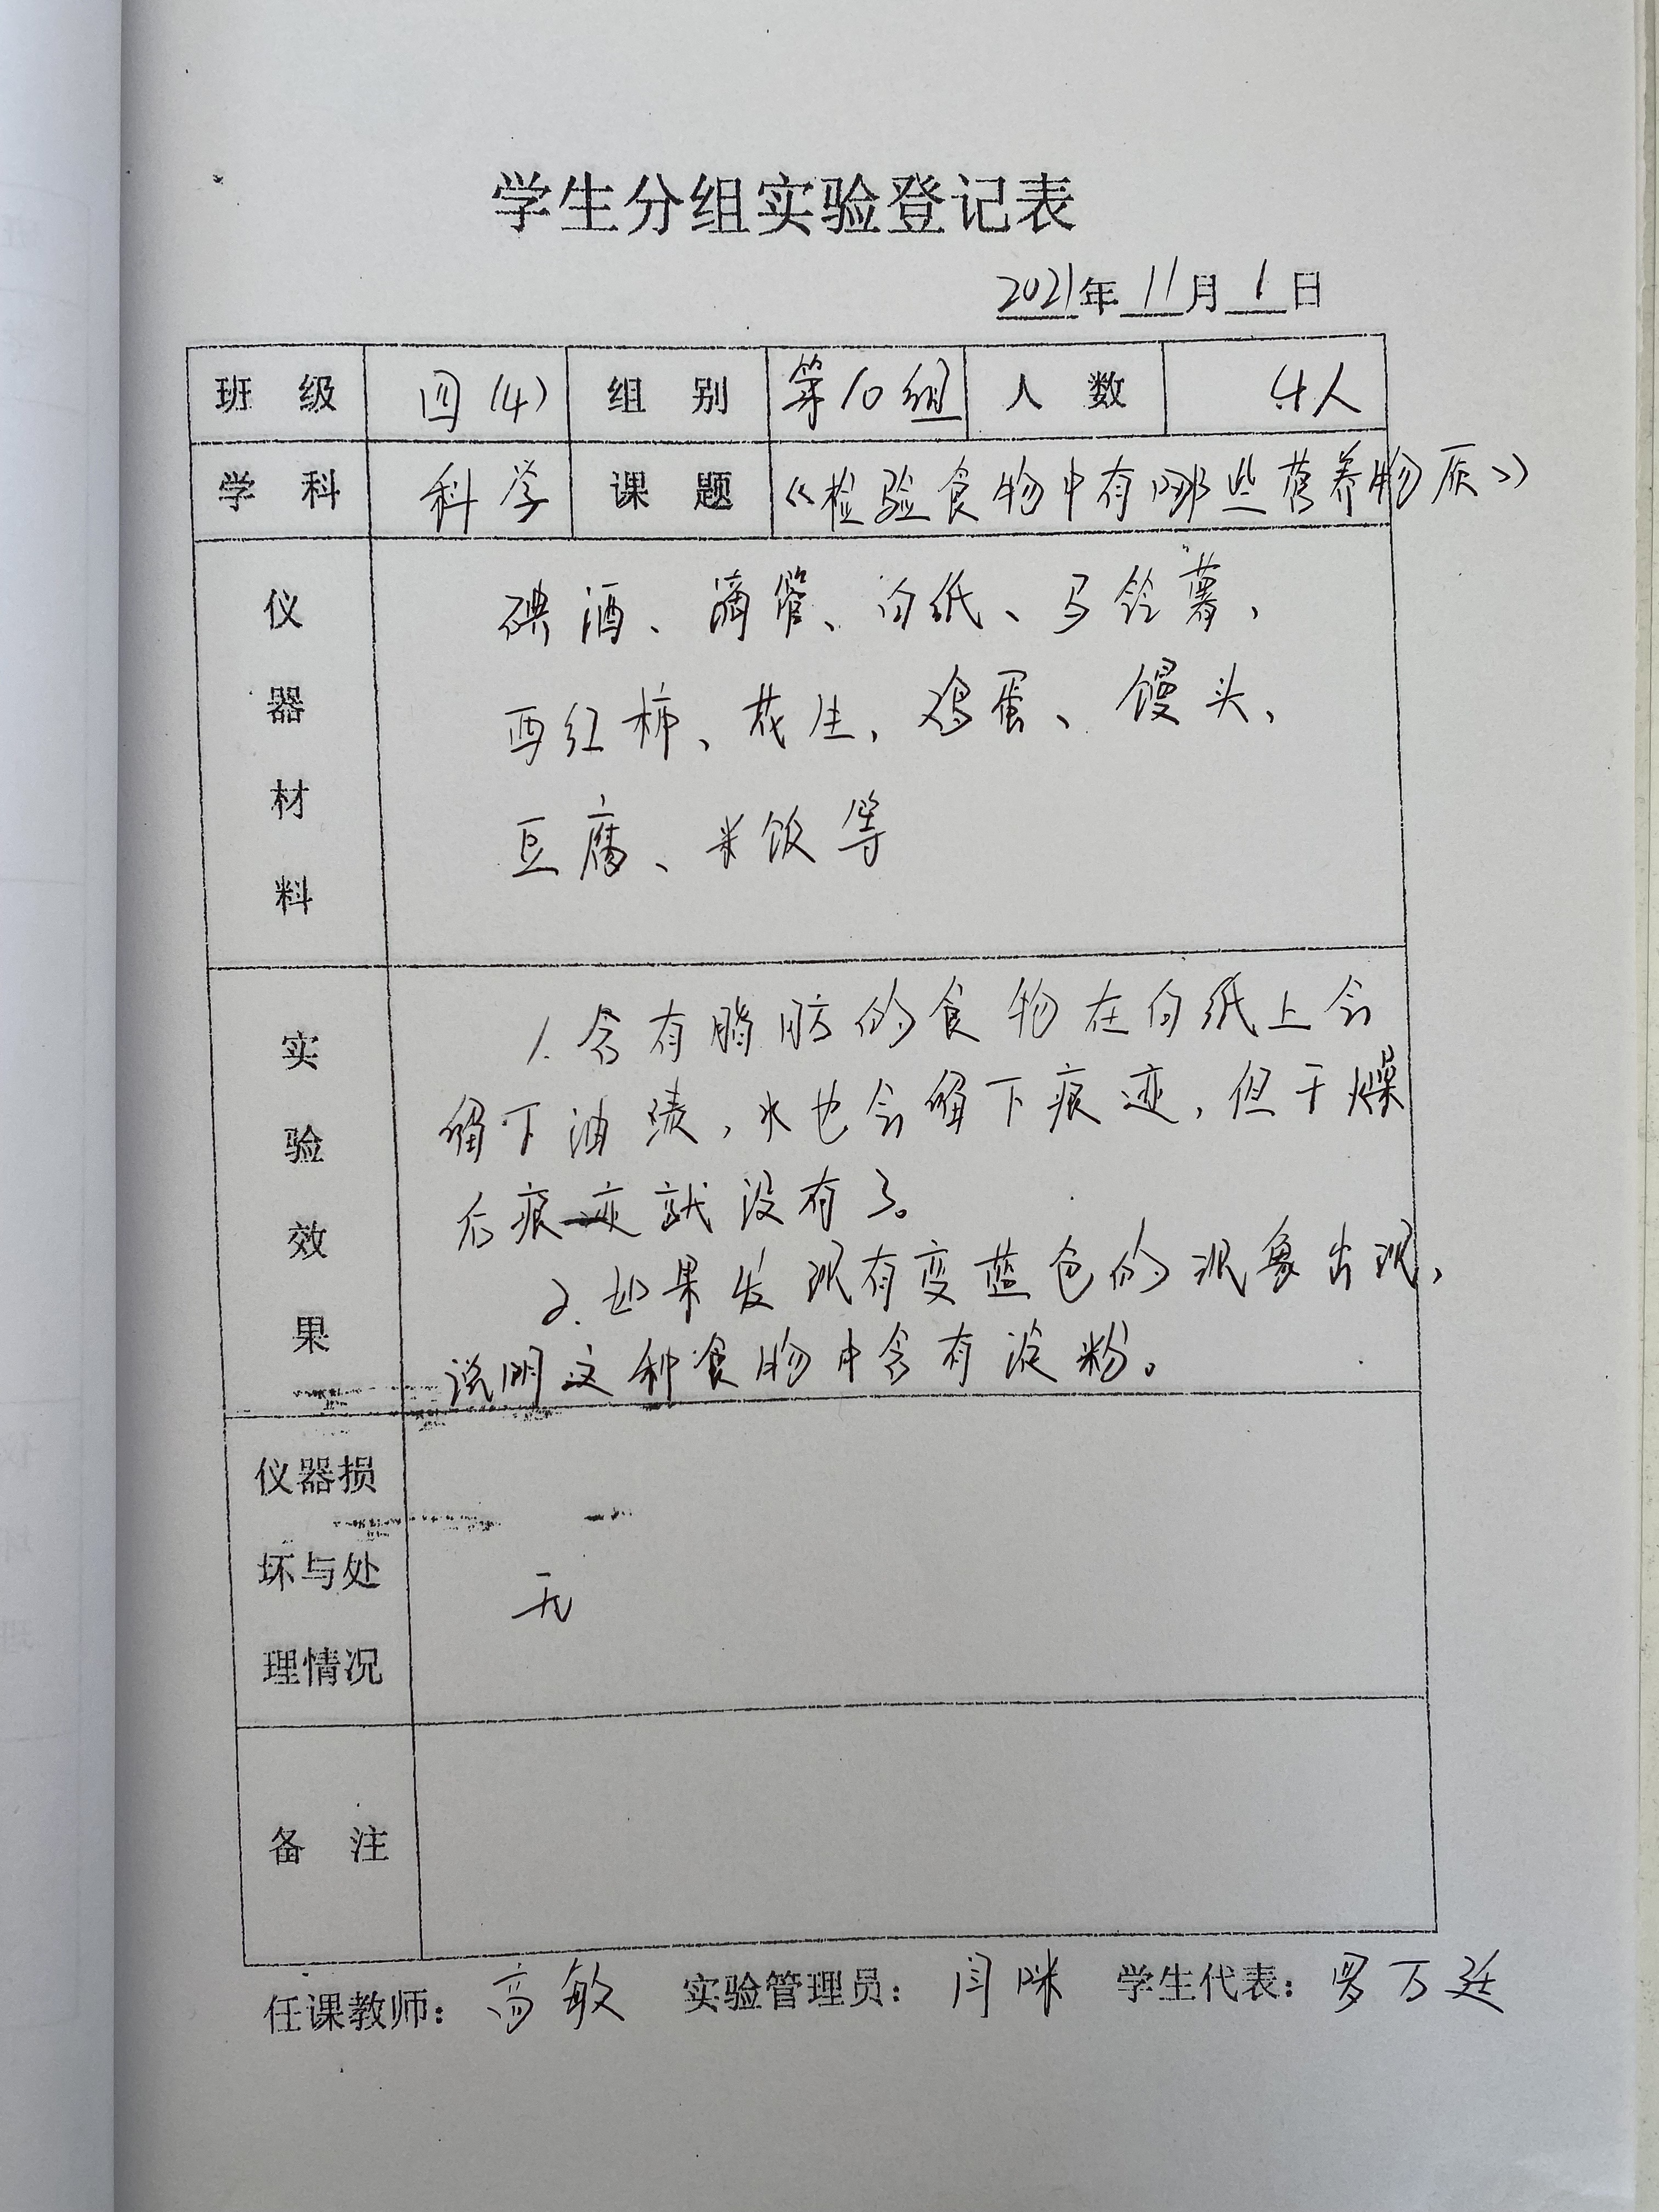 学生分组实验登记表
2021年 11月 1日
班 级 四(4) 组 别 第10组 人 数 4人
学 科 科学 课 题 《检验食物中有哪些营养物质》
仪器材料 碘酒、滴管、白纸、马铃薯、
西红柿、花生、鸡蛋、馒头、
豆腐、米饭等
实验效果 1.含有脂肪的食物在白纸上会
留下油渍,水也会留下痕迹,但干燥
后痕迹就没有了。
2.如果发现有变蓝色的现象出现,
说明这种食物中含有淀粉。
仪器损
坏与处 无
理情况
备 注
任课教师:高敏 实验管理员:闫咪 学生代表:罗万廷